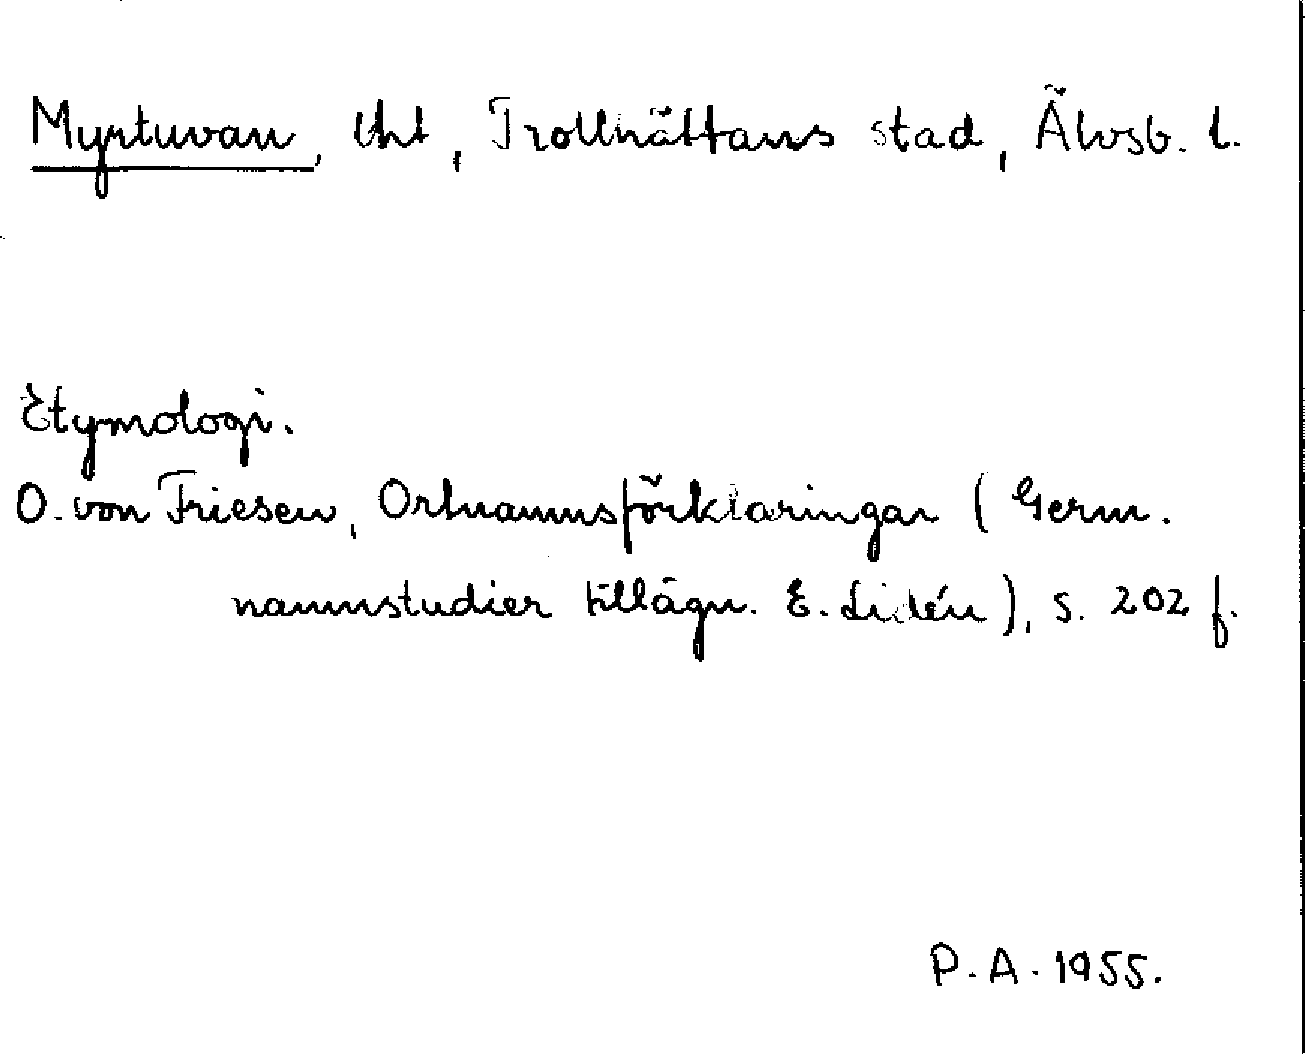 Myrtuvan, lht, Trollhättans stad, Älvsb. l.
Etymologi.
O. von Friesen, Ortnamnsförklaringar (Germ.
namnstudier tillägn. E. Lidén), s. 202 f.
P. A. 1955.